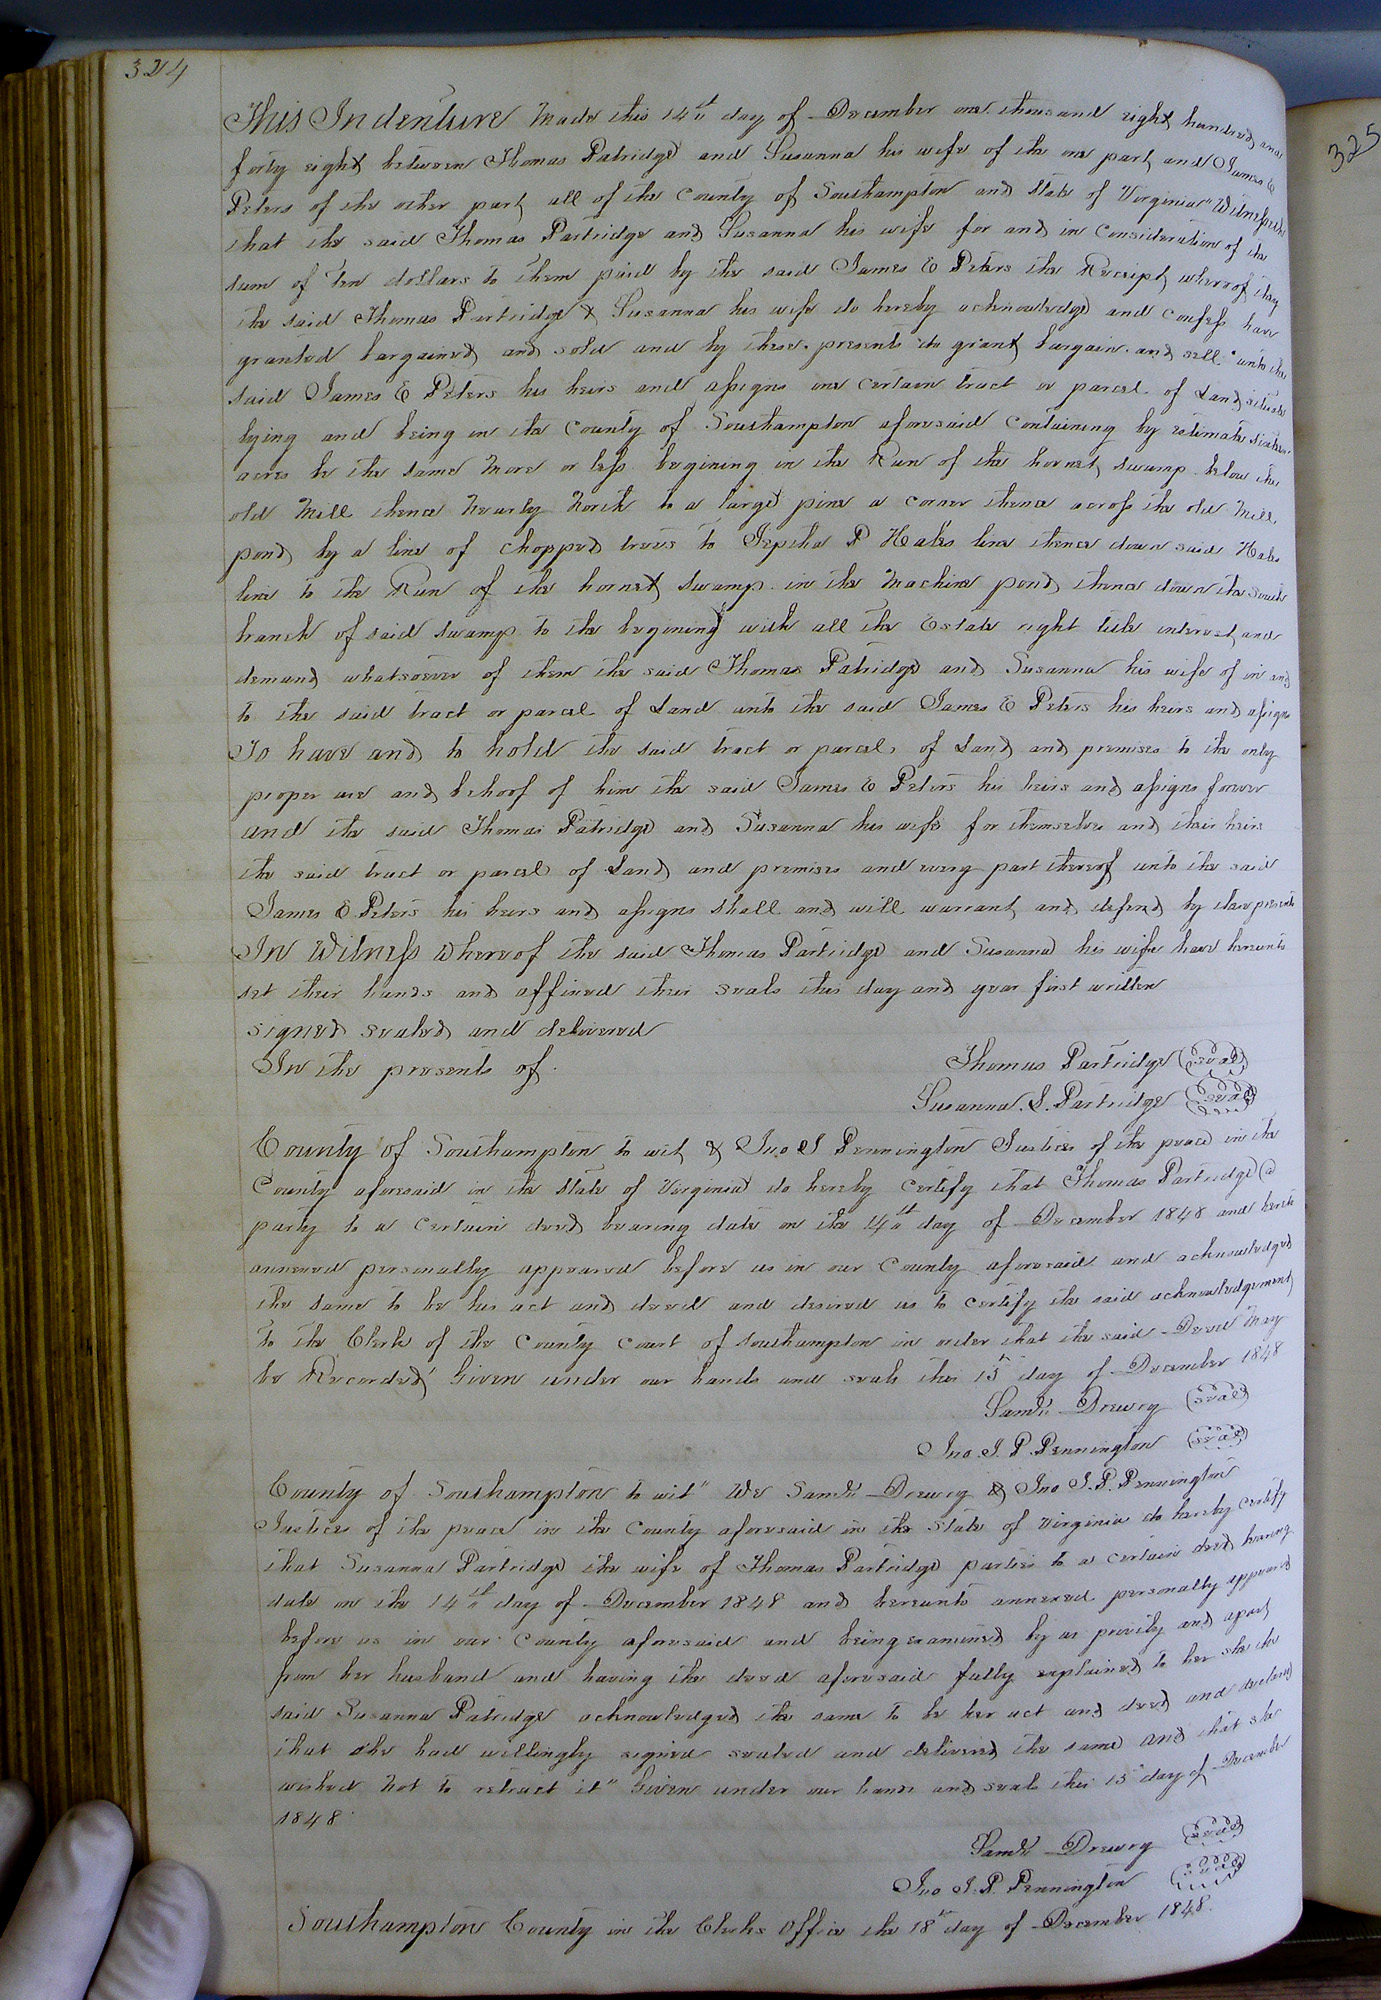 324
325
This Indenture Made this 14th day of December one thousand eight hundred and
forty eight between Thomas Patridge and Susanna his wife of the one part and James E
Peters of the other part all of the County of Southampton and State of Virginia" Witnesseth
that the said Thomas Partridge and Susanna his wife for and in Consideration of the
sum of ten dollars to them paid by the said James E Peters the Receipt whereof they
the said Thomas Partridge & Susanna his wife do hereby acknowledge and confess have
granted bargained and sold and by these presents do grant bargain and sell unto the
said James E Peters his heirs and assigns one certain tract or parcel of Land situate
lying and being in the County of Southampton aforesaid Containing by estimate sixteen
acres be the same More or less begining in the Run of the hornet swamp below the
old Mill thence Nearly North to a large pine a corner thence across the old Mill
pond by a line of chopped trees to Jeptha P Hales line thence down said Hales
line to the Run of the hornet swamp in the Machine pond thence down the South
branch of said swamp to the begining with all the Estate right title interest and
demand whatsoever of them the said Thomas Patridge and Susanna his wife of in and
to the said tract or parcel of Land unto the said James E Peters his heirs and assigns
To have and to hold the said tract or parcel of Land and premises to the only
proper use and behoof of him the said James E Peters his heirs and assigns forever
and the said Thomas Patridge and Susanna his wife for themselves and their heirs
the said tract or parcel of Land and premises and every part thereof unto the said
James E Peters his heirs and assigns shall and will warrant and defend by these presents
In Witness Whereof the said Thomas Partridge and Susanna his wife have hereunto
set their hands and affixed their seals this day and year first written
signed sealed and delivered
In the presents of
Thomas Partridge (seal)
Susanna. S. Partridge (seal)
County of Southampton to wit & Jno J Pennington Justices of the peace in the
County aforesaid in the State of Virginia do hereby Certify that Thomas Partridge a
party to a Certain deed bearing date on the 14th day of December 1848 and hereto
annexed personally appeared before us in our County aforesaid and acknowledged
the same to be his act and deed and desired us to certify the said acknowledgement
to the Clerk of the County Court of Southampton in order that the said Deed May
be Recorded Given under our hands and seals this 15th day of December 1848
Saml. Drewry (seal)
Jno. J. P. Pennington (seal)
County of Southampton to wit" We Saml. Drewry & Jno J. P. Pennington
Justices of the peace in the County aforesaid in the State of Virginia do hereby certify
that Susanna Partridge the wife of Thomas Partridge parties to a certain deed bearing
date on the 14th day of December 1848 and hereunto annexed personally appeared
before us in our County aforesaid and being examined by us privily and apart
from her husband and having the deed aforesaid fully explained to her she the
said Susanna Patridge acknowledged the same to be her act and deed and declared
that she had willingly signed sealed and delivered the same and that she
wished Not to retract it" Given under our hands and seals this 15th day of December
1848
Saml. Drewry (seal)
Jno J. P. Pennington (seal)
Southampton County in the Clerks Office the 18th day of December 1848.